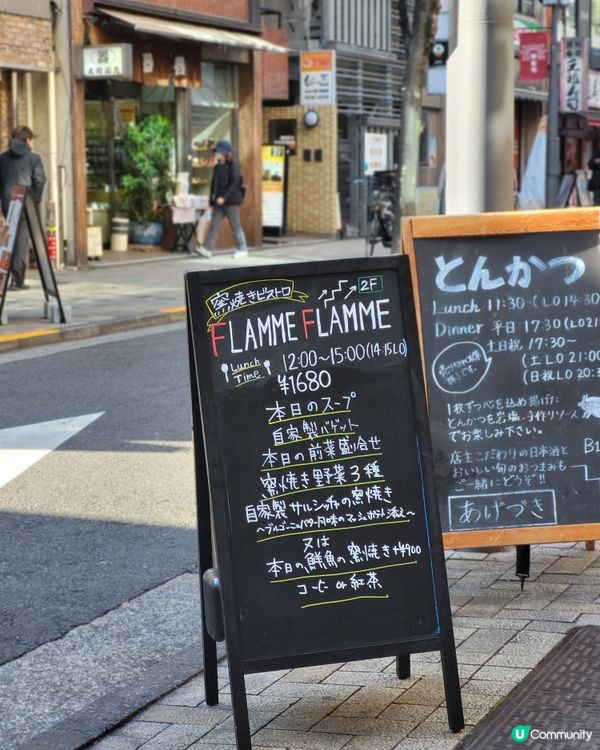 窯焼きビストロ
2F
FLAMME FLAMME
Lunch Time
12:00~15:00(14:15LO)
¥1680
本日のスープ
自家製バゲット
本日の前菜盛り合せ
窯焼き野菜3種
自家製サルシッチャの窯焼き
又は
本日の鮮魚の窯焼き+¥900
コーヒー or 紅茶
とんかつ
Lunch 11:30-(LO14:30
Dinner 平日 17:30(LO21
土日祝 17:30~
(土LO 21:00
(日祝LO 20:3
1枚ずつ心を込め揚げた
とんかつを岩塩、手作りソース
でお楽しみ下さい。
店主こだわりの日本酒と
おいしい旬のおつまみも
ご一緒にどうぞ!!
B1
あげづき
U Community